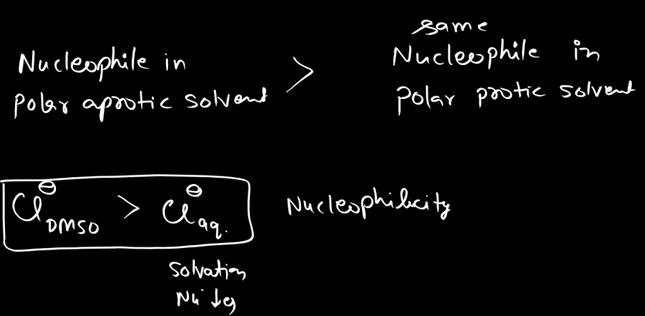 Nucleophile in
polar aprotic solvent
>
same
Nucleophile in
polar protic solvent
Cl⊖DMSO > Cl⊖aq.
Nucleophilicity
Solvation
Nu ↓es